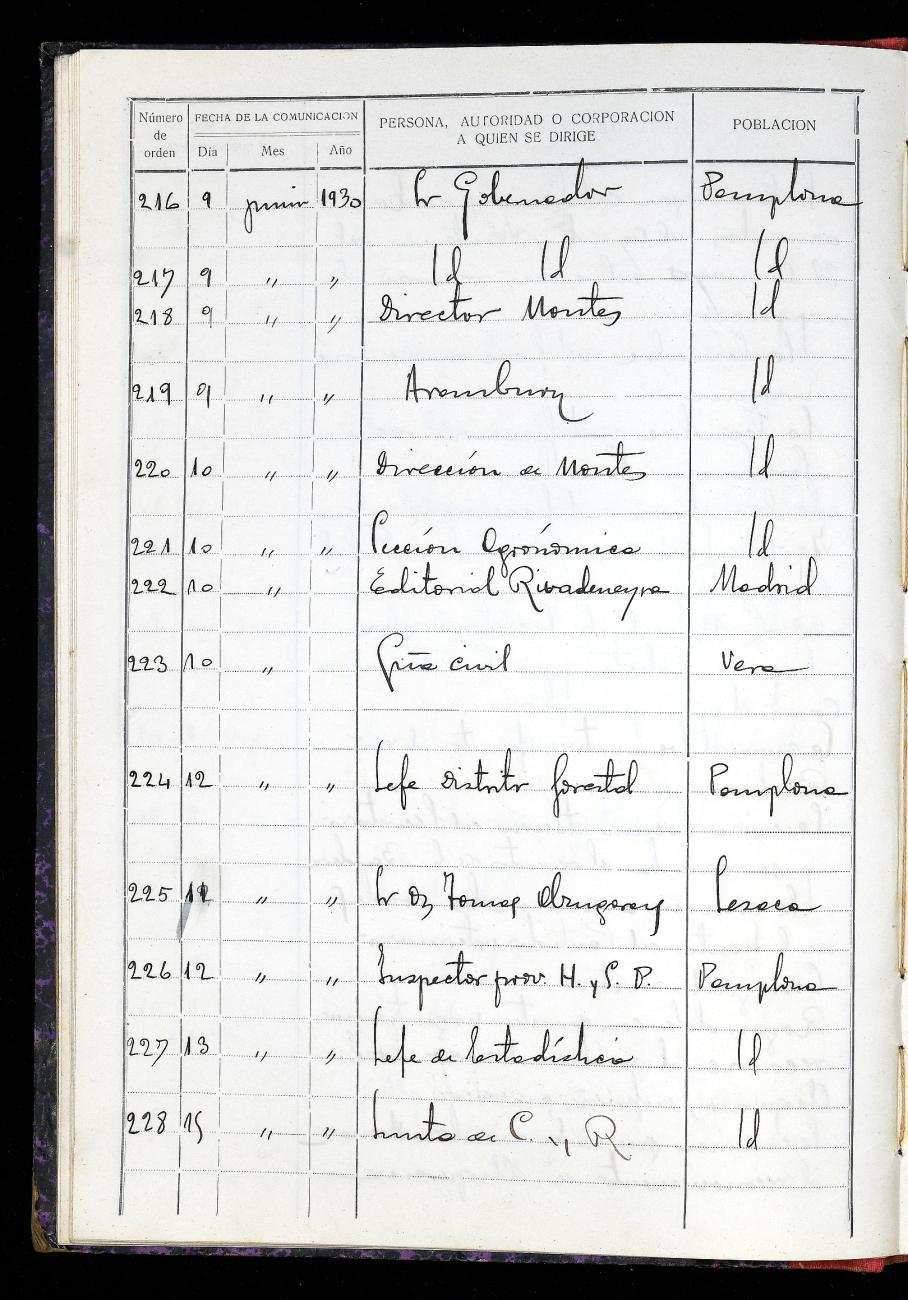 Número de orden | FECHA DE LA COMUNICACION | PERSONA, AUTORIDAD O CORPORACION A QUIEN SE DIRIGE | POBLACION
Día | Mes | Año
216 9 junio 1930 Sr Gobernador Pamplona
217 9 " " Id Id Id
218 9 " " Director Montes Id
219 9 " " Aramburu Id
220 10 " " Dirección de Montes Id
221 10 " " Sección Agronómica Id
222 10 " Editorial Rivadeneyra Madrid
223 10 " Gua civil Vera
224 12 " " Jefe Distrito forestal Pamplona
225 12 " " Sr Dn Tomas Lesaca
226 12 " " Inspector prov. H. y S. P. Pamplona
227 13 " " Jefe de Estadística Id
228 15 " " Junta de C. y R. Id